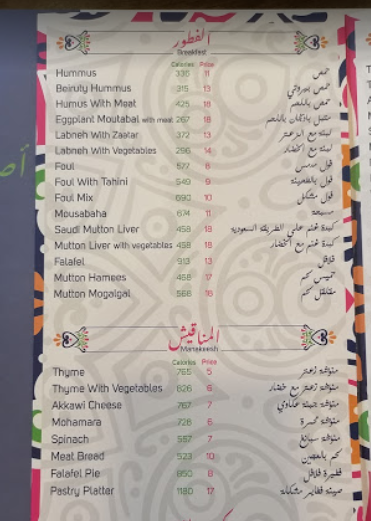 الفطور
Breakfast
Calories Price
Hummus 335 11 حمص
Beiruty Hummus 315 13 حمص بيروتي
Humus With Meat 425 18 حمص باللحم
Eggplant Moutabal with meat 267 18 متبل باذنجان باللحم
Labneh With Zaatar 372 13 لبنة مع الزعتر
Labneh With Vegetables 296 14 لبنة مع الخضار
Foul 577 8 فول مدمس
Foul With Tahini 549 9 فول بالطحينة
Foul Mix 690 10 فول مشكل
Mousabaha 674 11 مسبحة
Saudi Mutton Liver 458 18 كبدة غنم على الطريقة السعودية
Mutton Liver with vegetables 458 18 كبدة غنم مع الخضار
Falafel 913 13 فلافل
Mutton Hamees 458 17 حميس لحم
Mutton Mogalgal 568 18 مقلقل لحم
المناقيش
Manaqeesh
Calories Price
Thyme 765 5 منقوشة زعتر
Thyme With Vegetables 826 6 منقوشة زعتر مع خضار
Akkawi Cheese 767 7 منقوشة جبنة عكاوي
Mohamara 728 6 منقوشة محمرة
Spinach 557 7 منقوشة سبانخ
Meat Bread 523 10 لحم بالعجين
Falafel Pie 850 8 فطيرة فلافل
Pastry Platter 1180 17 صينية فطاير مشكلة